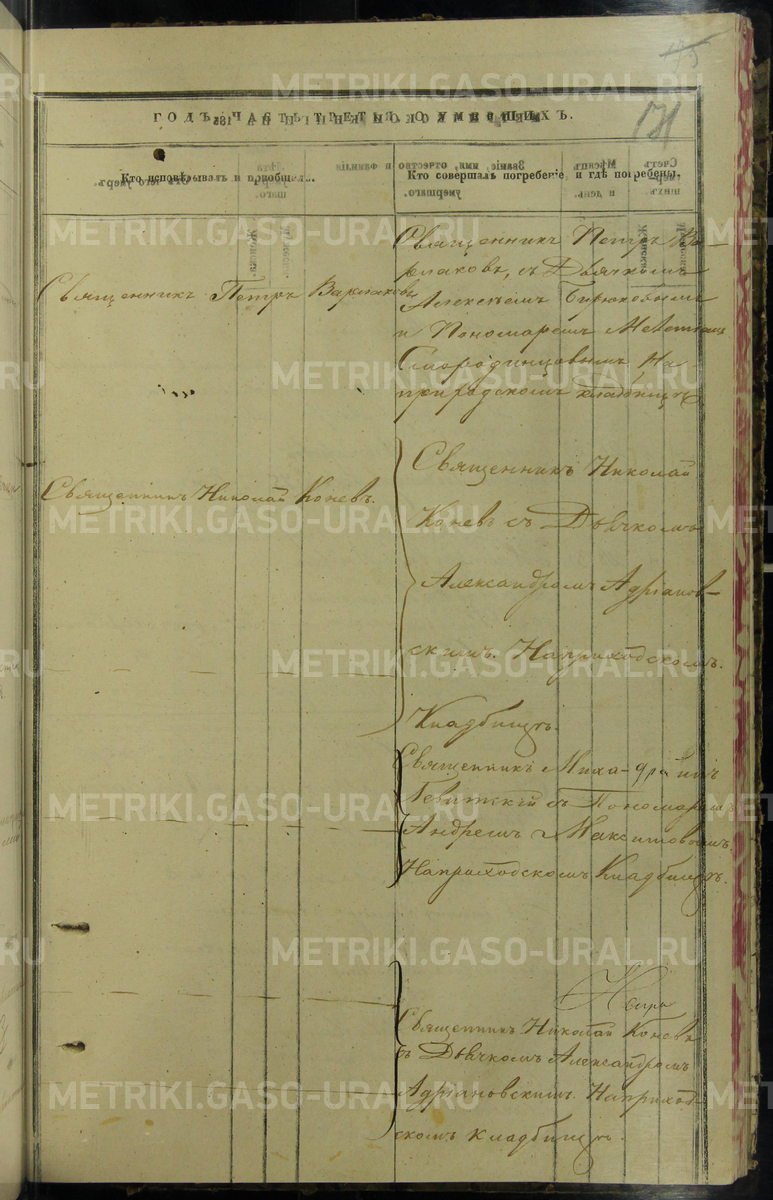 45
171
ГОДЪ, ЧАСТЬ ТРЕТІЯ, О УМЕРШИХЪ.
Кто исповѣдывалъ и пріобщалъ.
Кто совершалъ погребеніе и гдѣ погребены.
Священникъ Петръ Варлаковъ
Священникъ Петръ Ва-
рлаковъ, съ Дьячкомъ
Алексѣемъ Бирюковымъ
и Пономаремъ
Смородинцовымъ На-
приходскомъ кладбищѣ
Священникъ Николай Коневъ.
Священникъ Николай
Коневъ съ Дьячкомъ
Александромъ Адріанов-
скимъ. Наприходскомъ.
Кладбищѣ.
Священникъ
съ Пономаремъ
Андреемъ Максимовымъ
Наприходскомъ Кладбищѣ.
Священникъ Николай Коневъ
съ Дьячкомъ Александромъ
Адріановскимъ Наприход-
скомъ кладбищѣ.
METRIKI.GASO-URAL.RU